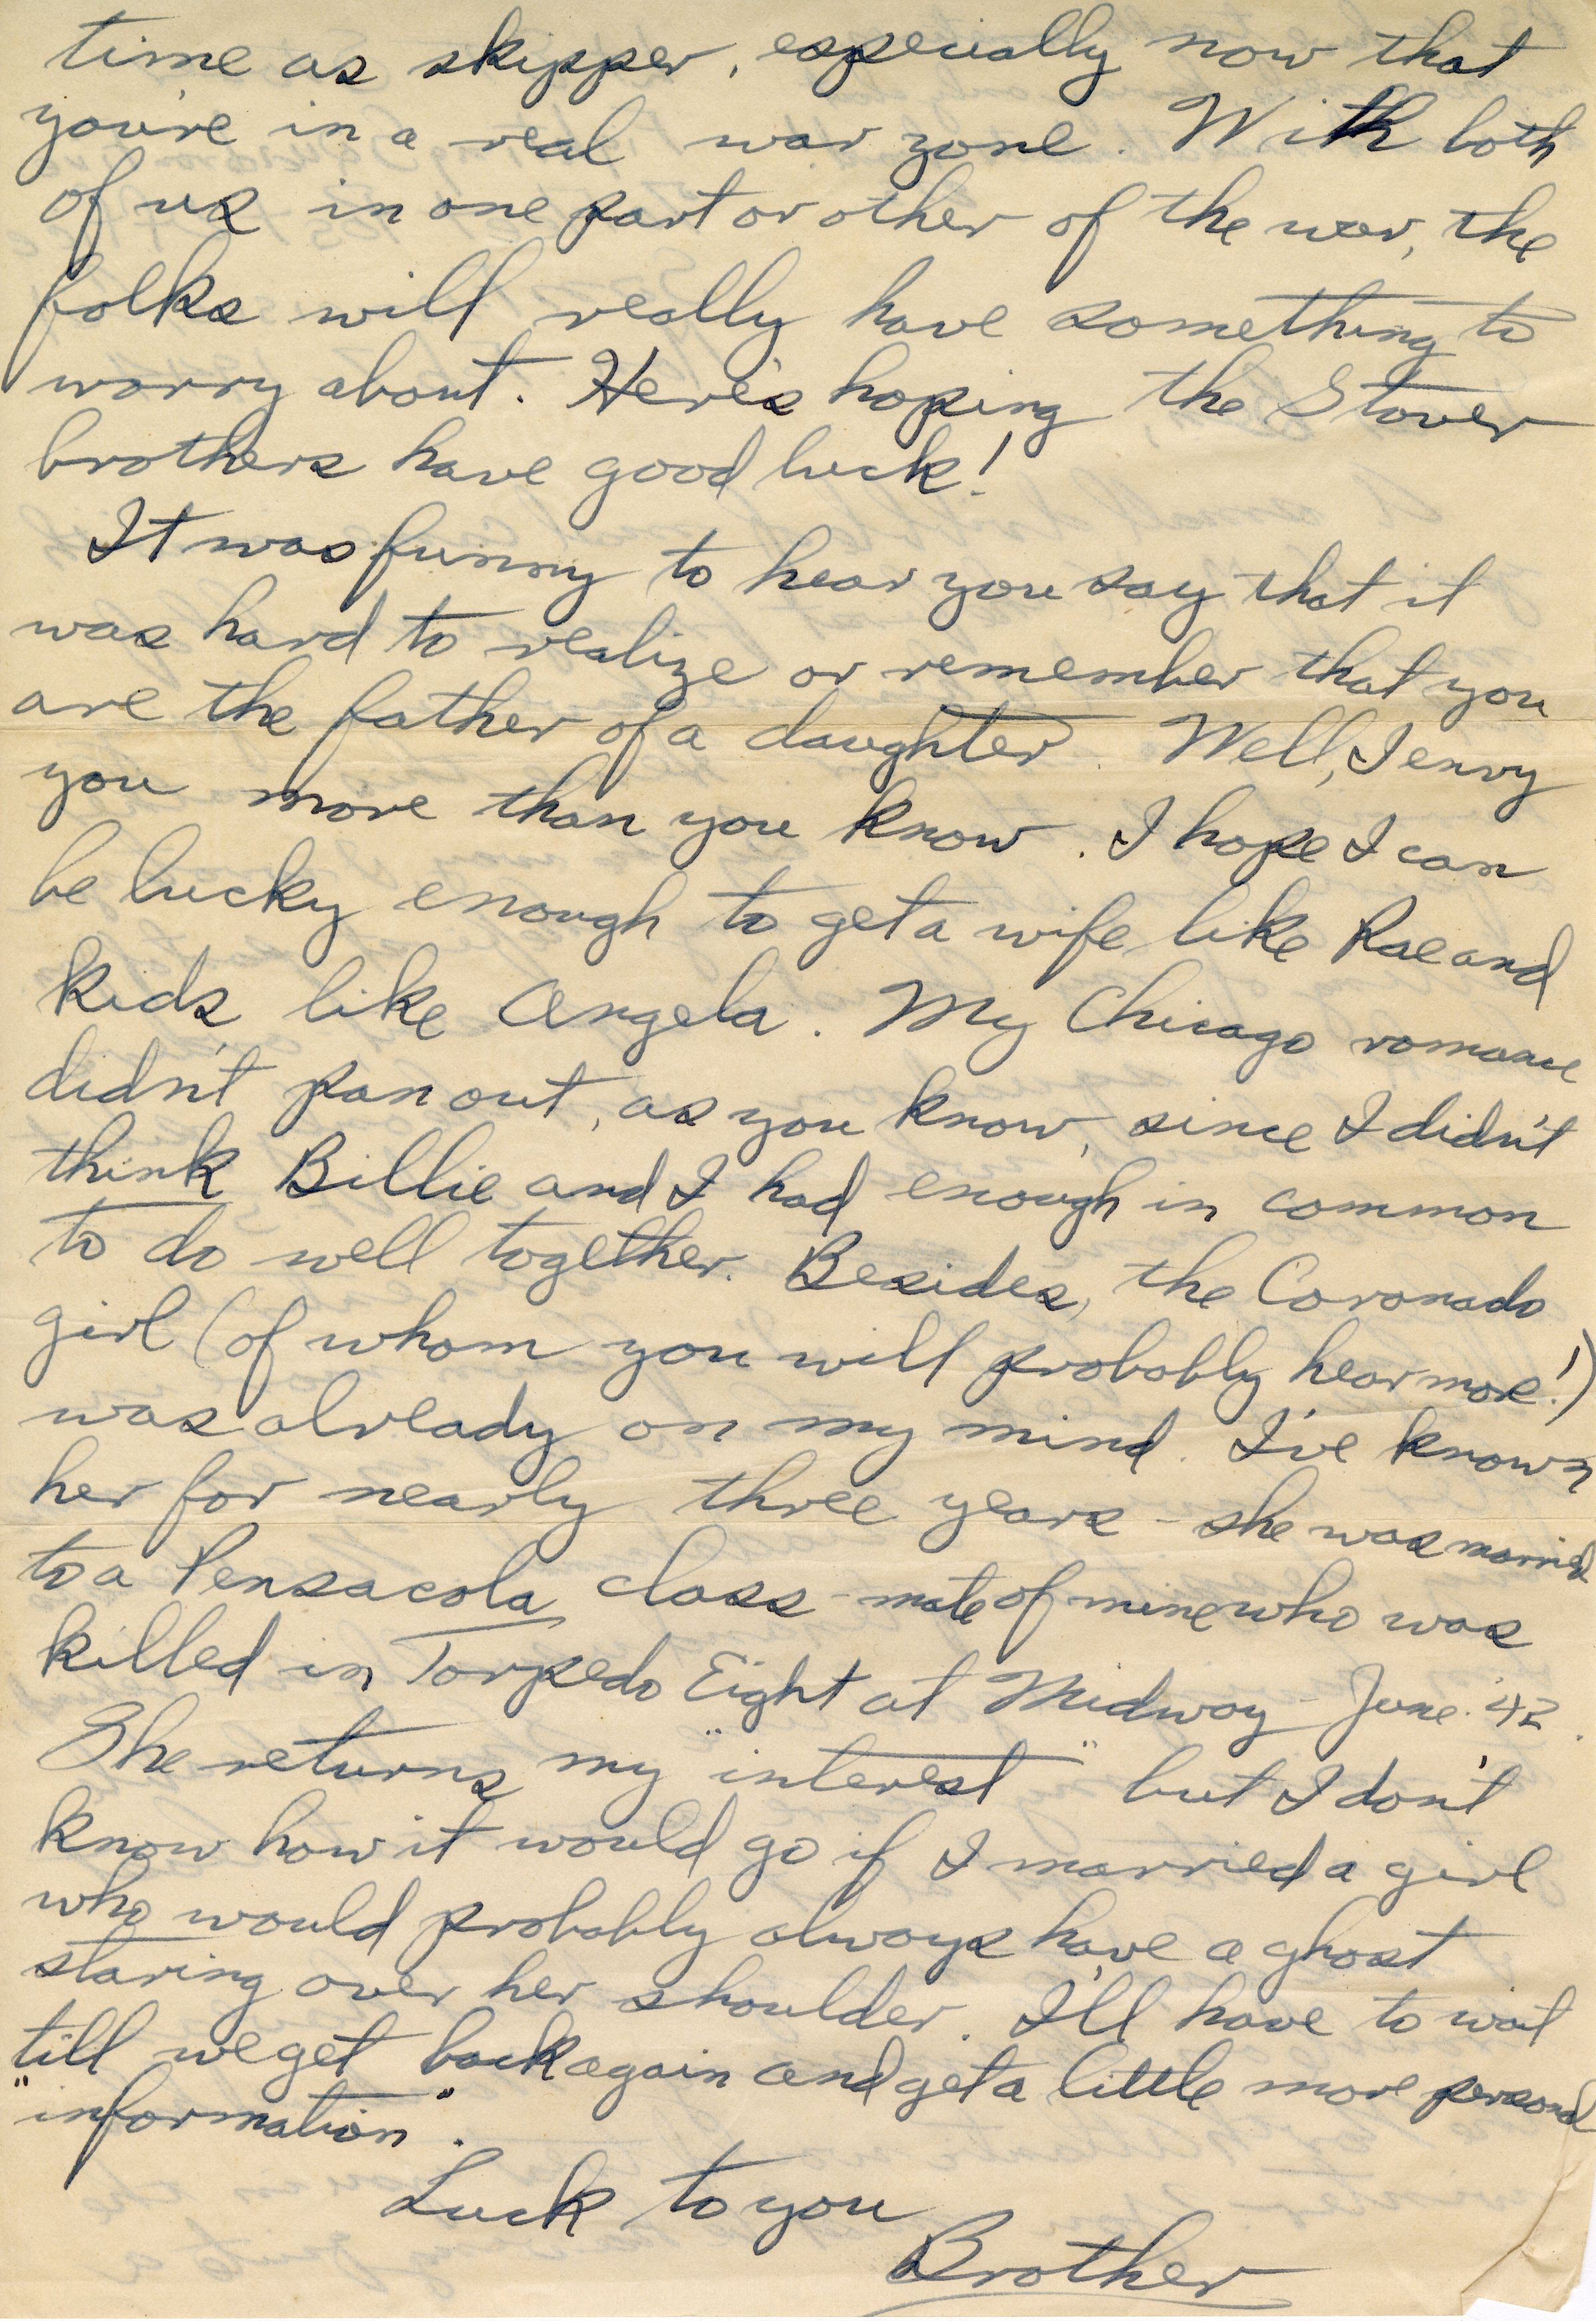 time as skipper, especially now that
you're in a real war zone. With both
of us in one part or other of the war, the
folks will really have something to
worry about. Here's hoping the Stover
brothers have good luck!
It was funny to hear you say that it
was hard to realize or remember that you
are the father of a daughter. Well, I envy
you more than you know. I hope I can
be lucky enough to get a wife like Rae and
kids like Angela. My Chicago romance
didn't pan out, as you know, since I didn't
think Billie and I had enough in common
to do well together. Besides, the Coronado
girl (of whom you will probably hear more!)
was already on my mind. I've known
her for nearly three years - she was married
to a Pensacola class-mate of mine who was
killed in Torpedo Eight at Midway - June '42.
She returns my "interest" but I don't
know how it would go if I married a girl
who would probably always have a ghost
staring over her shoulder. I'll have to wait
till we get back again and get a little more personal
"information".
Luck to you
Brother